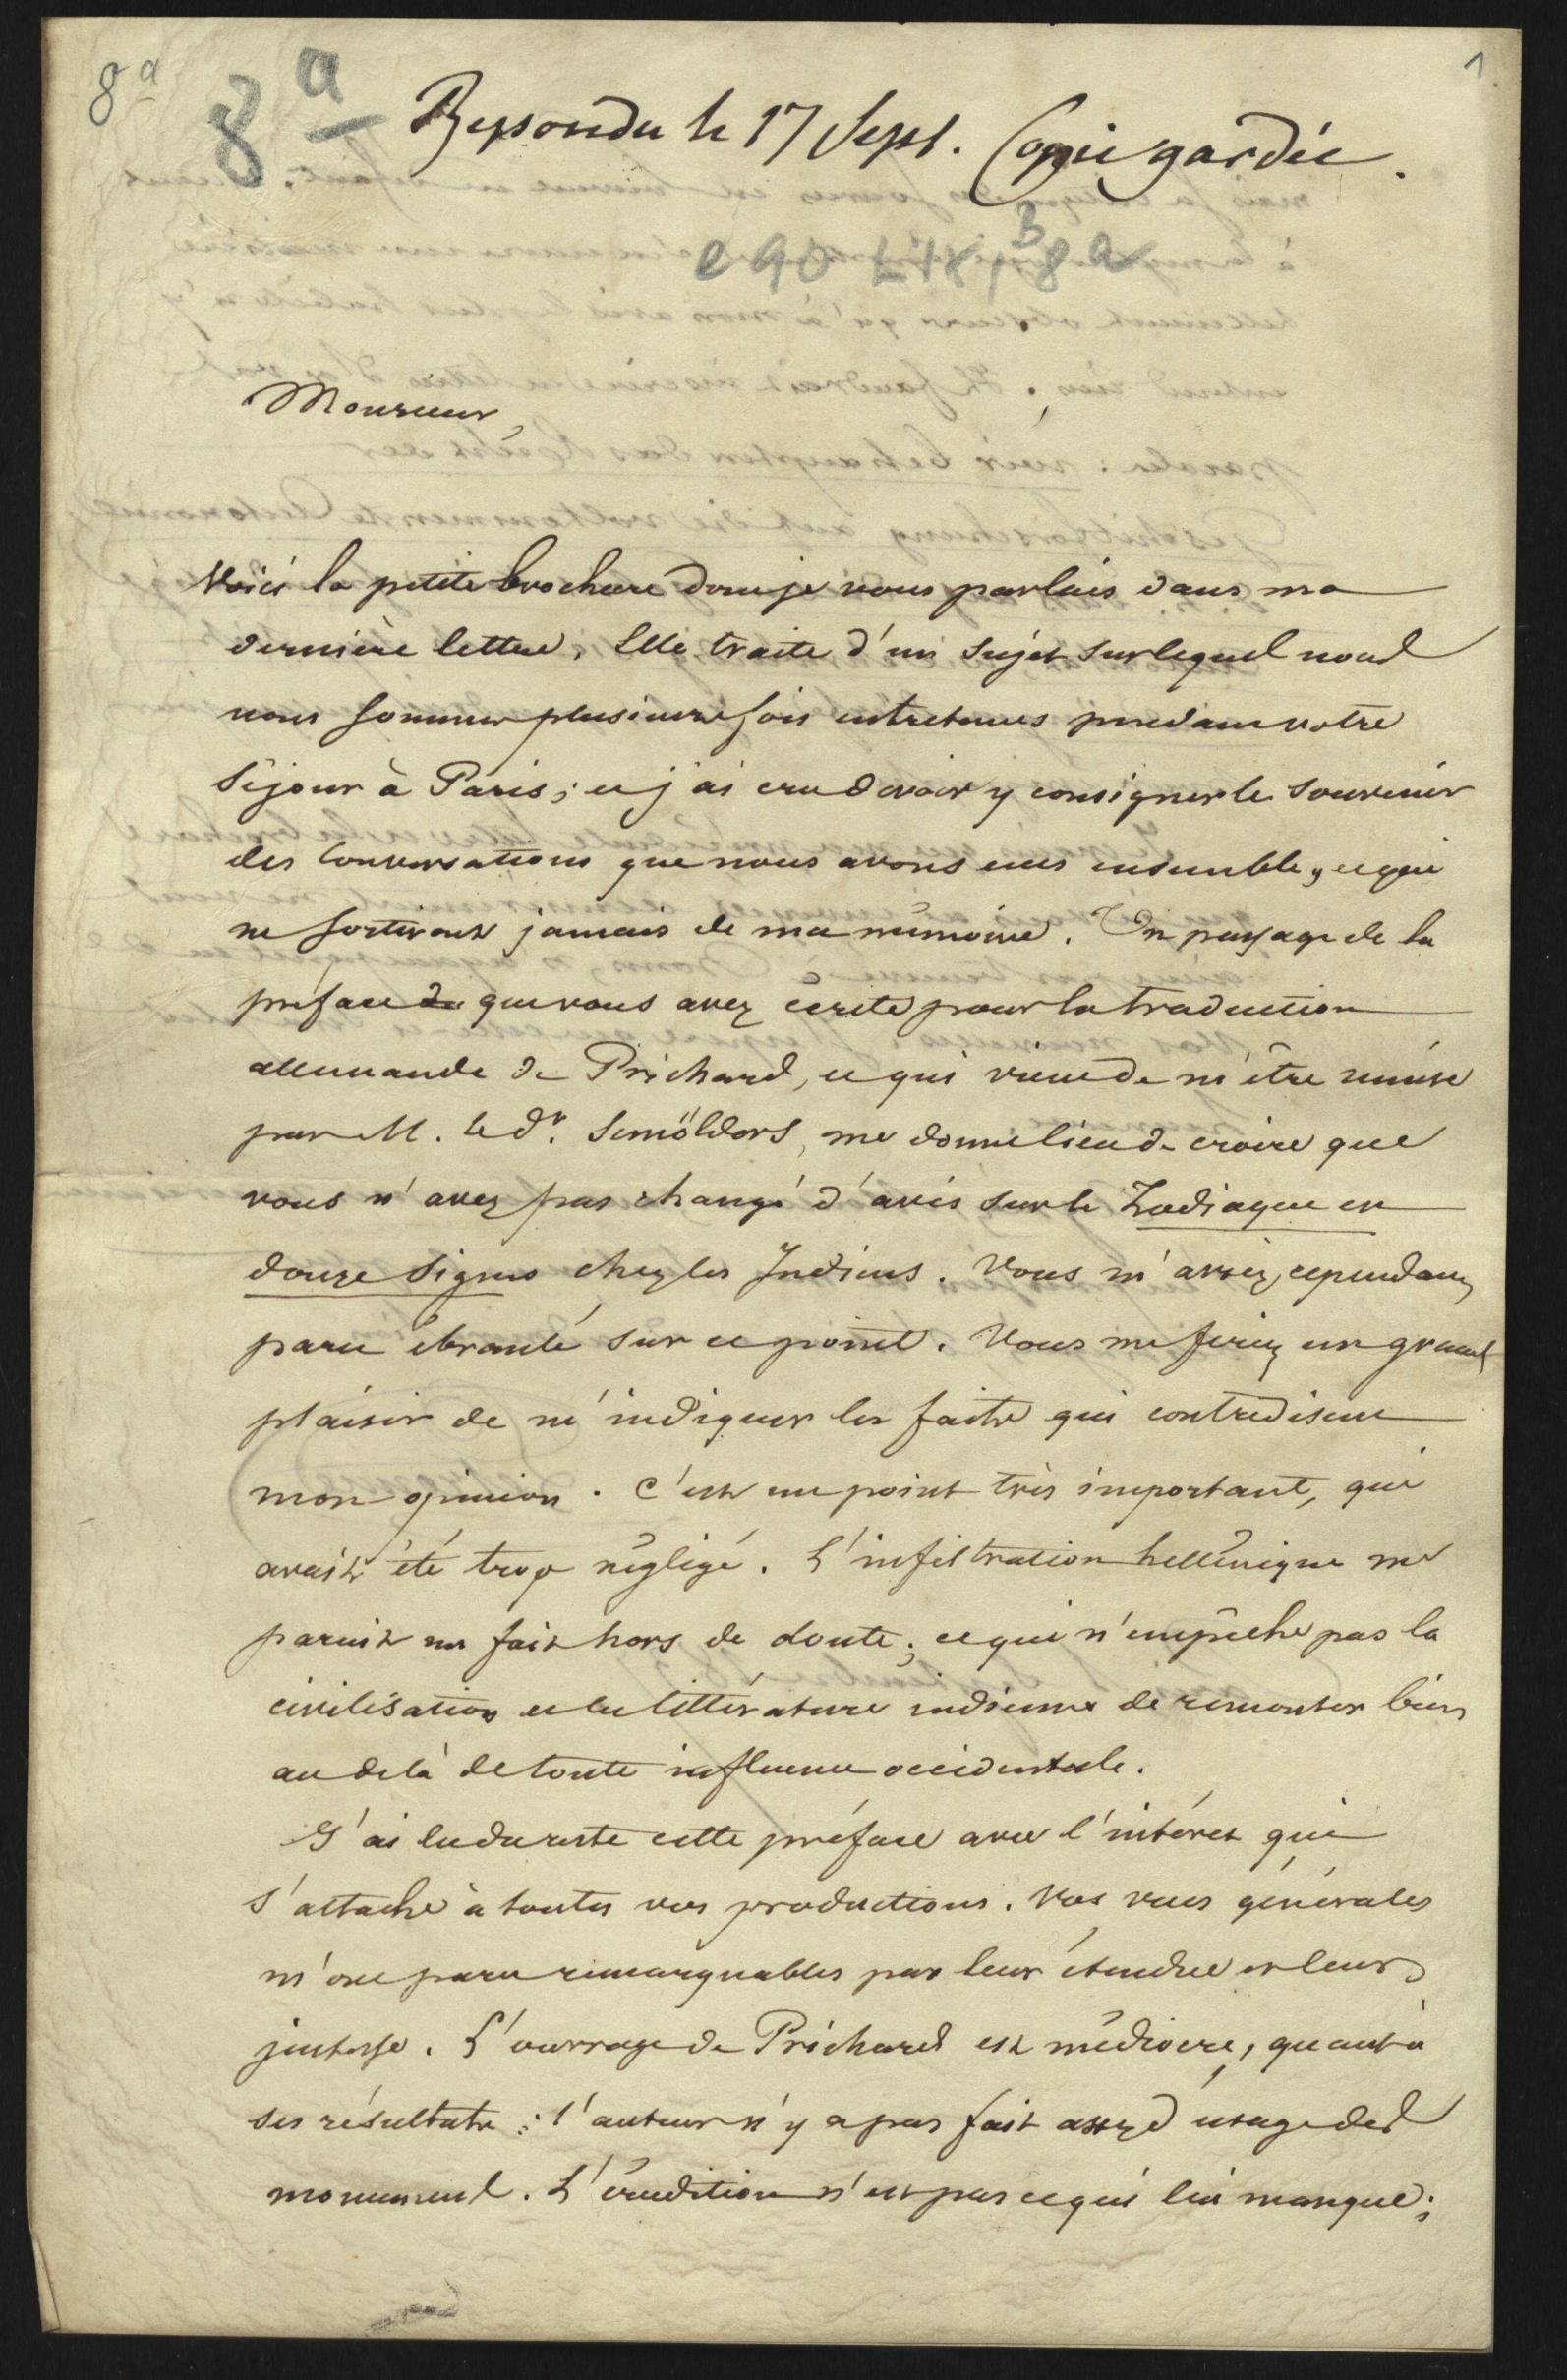 8a
8a
1
Repondu le 17 Sept. Copie gardée.
Monsieur,
Voici la petite brochure dont je vous parlais dans ma
dernière lettre. Elle traite d'un sujet sur lequel nous
nous sommes plusieurs fois entretenus pendant votre
séjour à Paris; et j'ai cru devoir y consigner le souvenir
des conversations que nous avons eues ensemble, et qui
ne sortiront jamais de ma mémoire. Un passage de la
préface que vous avez écrite pour la traduction
allemande de Prichard, et qui vient de m'être remise
par M. le dr. Semöldors, me donne lieu de croire que
vous n'avez pas changé d'avis sur le Zodiaque en
douze signes chez les Indiens. Vous m'aviez, cependant,
paru ébranlé sur ce point. Vous me feriez un grand
plaisir de m'indiquer les faits qui contredisent
mon opinion. C'est un point très important, qui
avait été trop négligé. L'infiltration hellénique me
parait un fait hors de doute; ce qui n'empêche pas la
civilisation et la littérature indienne de remonter bien
au delà de toute influence occidentale.
J'ai lu du reste cette préface avec l'intérêt qui
s'attache à toutes vos productions. Vos vues générales
m'ont paru remarquables par leur étendue et leur
justesse. L'ouvrage de Prichard est médiocre, quant à
ses résultats: l'auteur n'y a pas fait assez d'usage des
monument. L'érudition n'est pas ce qui lui manque;